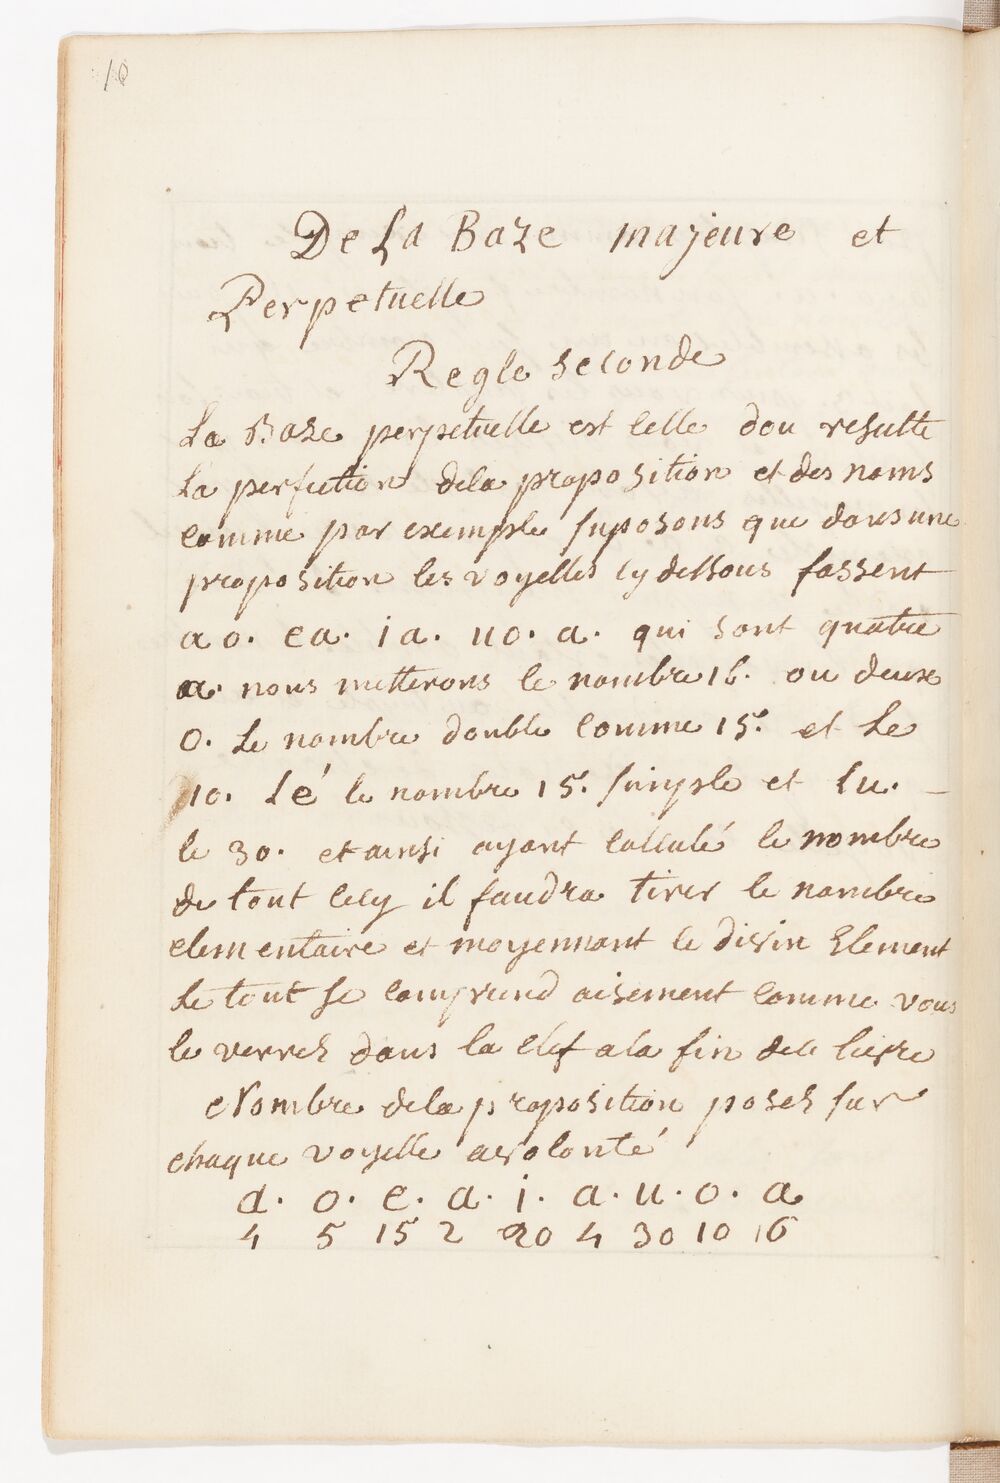 10
De La Baze majeure et
Perpetuelle
Regle seconde
La Baze perpetuelle est celle dou resulte
La perfection dela proposition et des noms
comme par exemple suposons que dans une
proposition les voyelles cy dessous fassent
a o. ea. ia. uo. a. qui sont quatre
a. nous metterons le nombre 16. ou deux
o. Le nombre double comme 15. et Le
10. Lé le nombre 15. simple et Lu. –
le 30. et ainsi ayant calculé le nombre
de tout cecy il faudra tirer le nombre
elementaire et moyennant le divin Element
Le tout se comprend aisement comme vous
le verrez dans la clef a la fin de ce livre
Nombre dela proposition posez sur
chaque voyelle avolonté
a. o. e. a. i. a. u. o. a
4 5 15 2 20 4 30 10 16